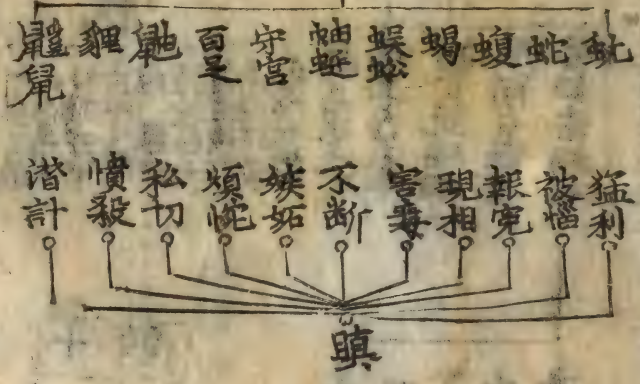 蚖
蛇
蝮
蝎
蜈蚣
蚰蜒
守宮
百足
鼬
貍
鼷鼠
猛利
被惱
報冤
現相
害毒
不断
嫉妬
煩
私切
憤殺
計
瞋